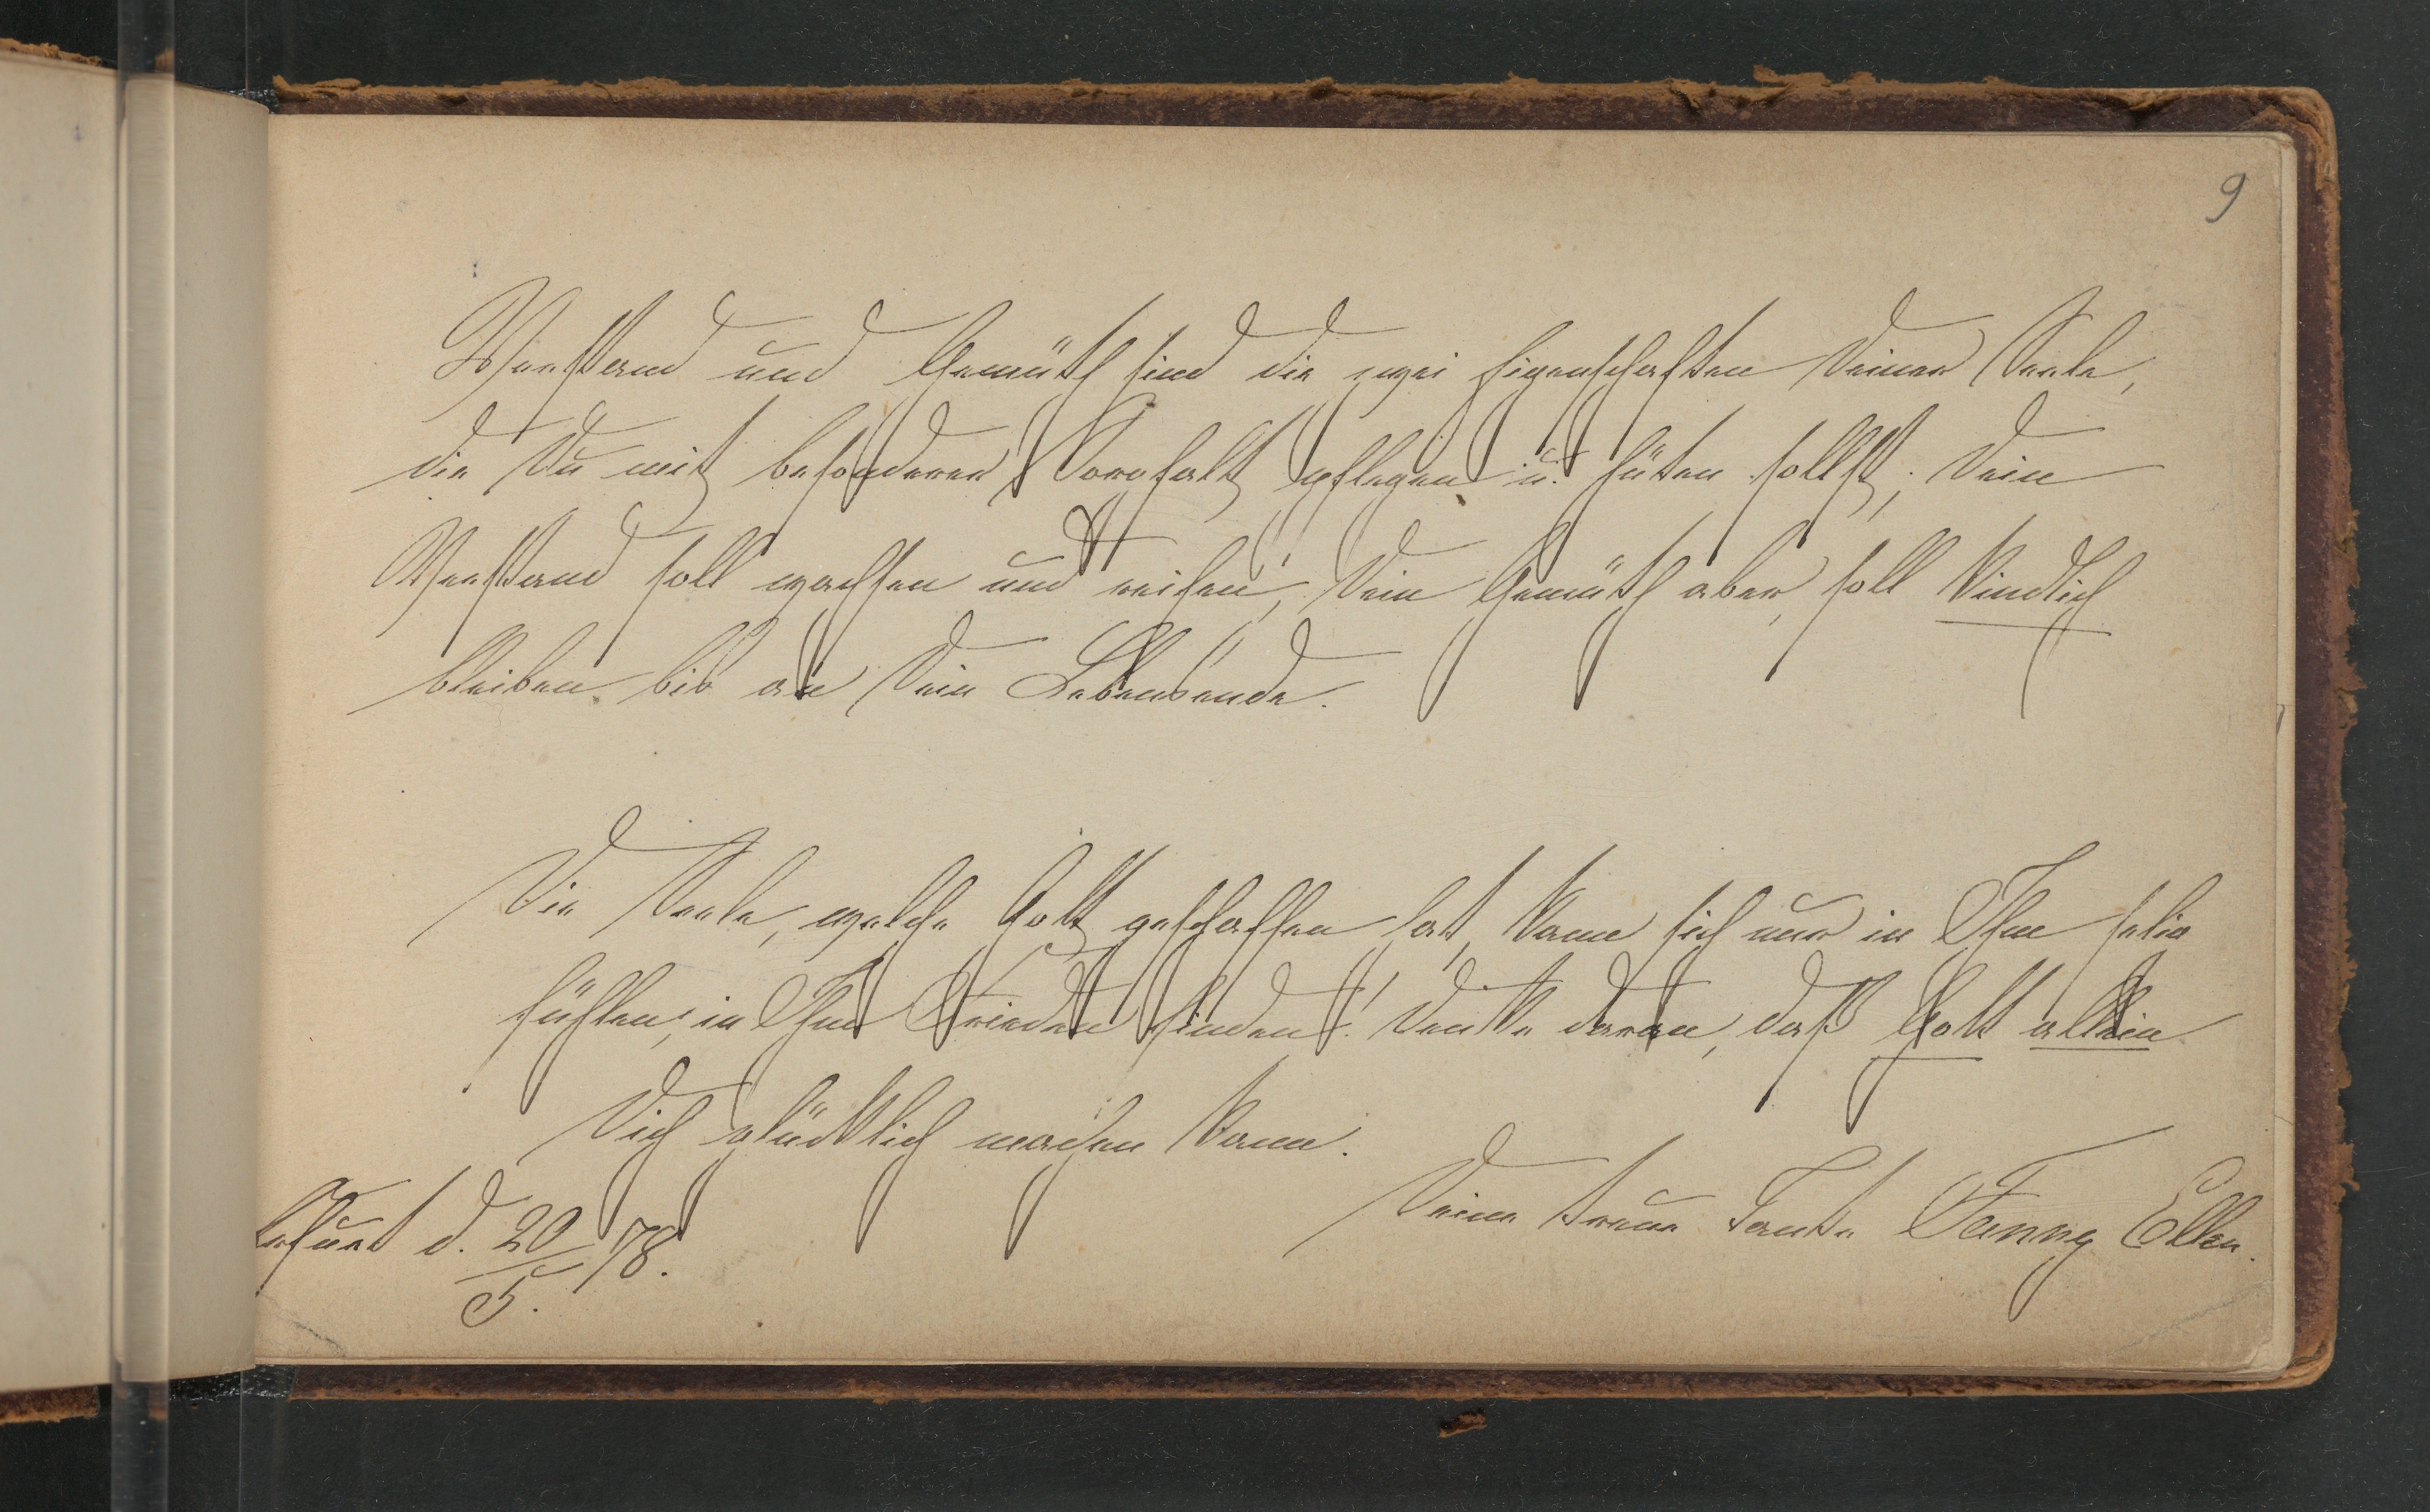 9
Verstand und Gemüth sind die zwei Eigenschaften Deiner Seele,
die Du mit besonderer Sorgfalt pflegen u. hüten sollst; Dein
Verstand soll wachsen und reifen, Dein Gemüth aber, soll kindlich
bleiben bis an Dein Lebensende.
Die Seele, welche Gott geschaffen hat, kann sich nur in Ihm selig
fühlen, in Ihm Frieden finden! Denke daran, daß Gott allein
Dich glücklich machen kann.
Deine treue Tante Fanny Ellen.
Erfurt d. 20/5. 78.